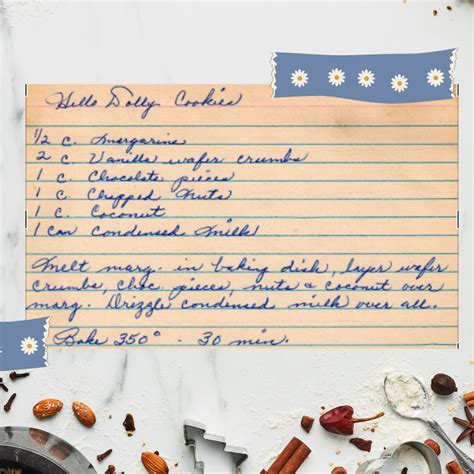 Hello Dolly Cookies
1/2 c. Margarine
2 c. Vanilla wafer crumbs
1 c. Chocolate pieces
1 c. Chopped Nuts
1 c. Coconut
1 Can Condensed Milk
Melt marg. in baking dish, layer wafer
crumbs, choc. pieces, nuts & coconut over
marg. Drizzle condensed milk over all.
Bake 350° - 30 min.